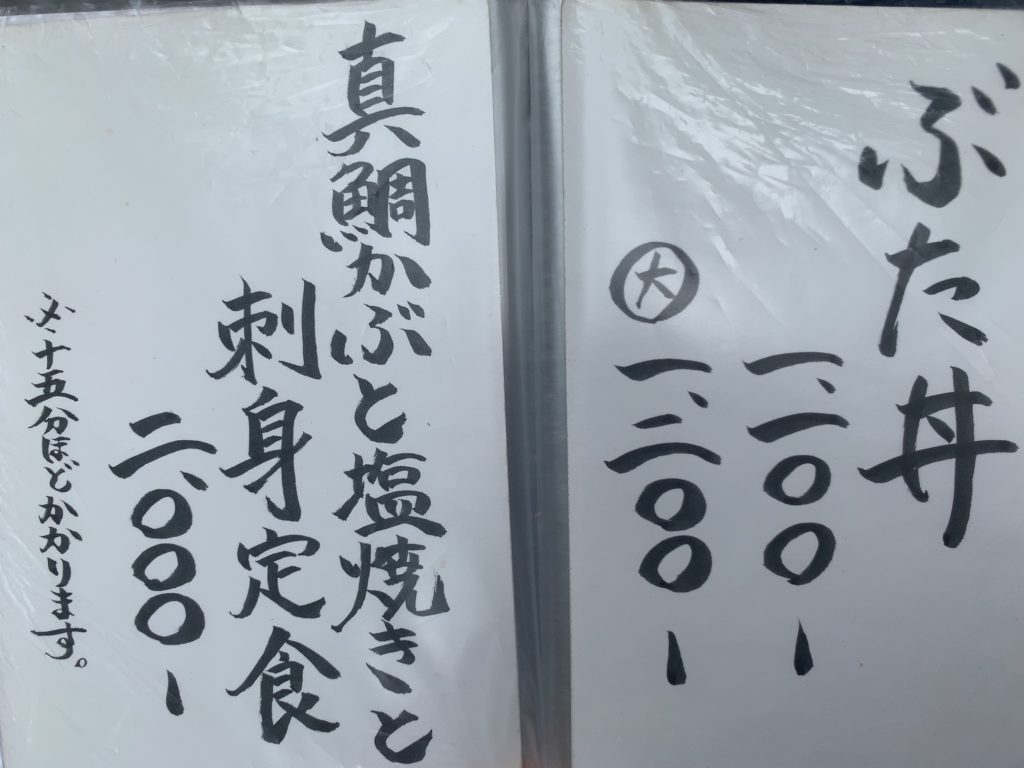 ぶた丼
一、一〇〇-
㊛大 一、二〇〇-
真鯛かぶと塩焼きと
刺身定食
二、〇〇〇-
※十五分ほどかかります。